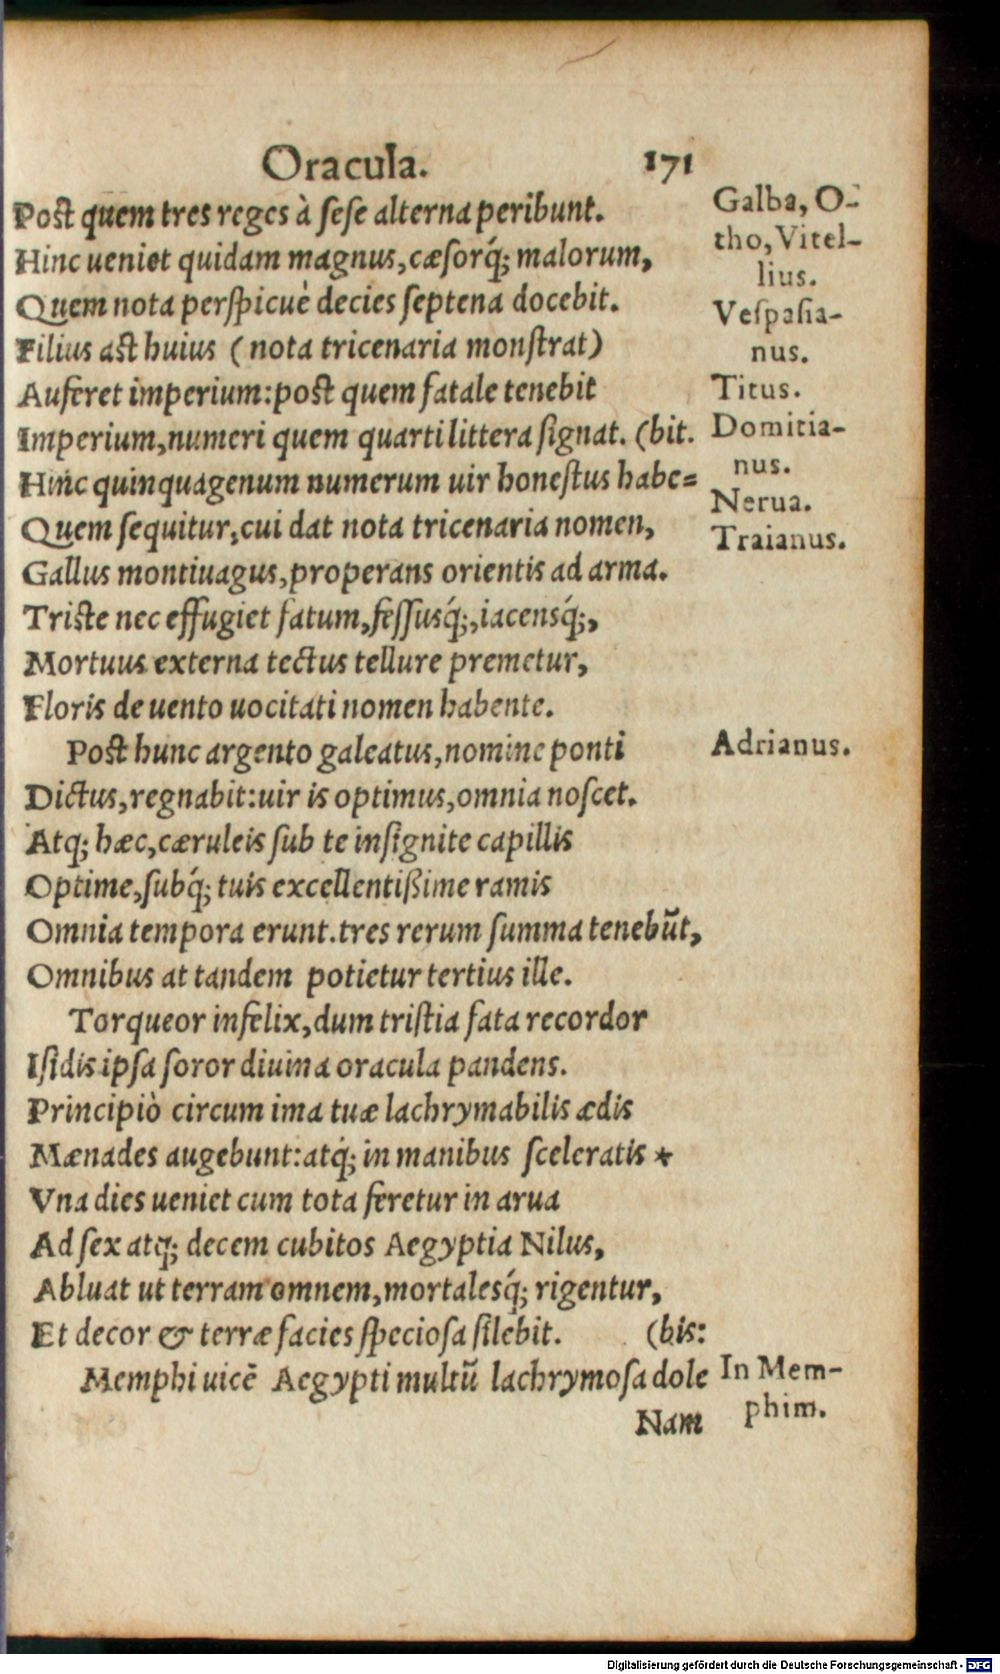 Oracula. 171
Post quem tres reges à sese alterna peribunt.
Galba, O-
tho, Vitel-
lius.
Hinc ueniet quidam magnus, cæsorq́; malorum,
Quem nota perspicuè decies septena docebit.
Vespasia-
nus.
Filius ast huius (nota tricenaria monstrat)
Auferet imperium: post quem fatale tenebit
Titus.
Imperium, numeri quem quarti littera signat. (bit.
Domitia-
nus.
Hinc quinquagenum numerum uir honestus habe=
Nerua.
Quem sequitur, cui dat nota tricenaria nomen,
Traianus.
Gallus montiuagus, properans orientis ad arma.
Triste nec effugiet fatum, fessusq́;, iacensq́;,
Mortuus externa tectus tellure premetur,
Floris de uento uocitati nomen habente.
Post hunc argento galeatus, nomine ponti
Adrianus.
Dictus, regnabit: uir is optimus, omnia noscet.
Atq; hæc, cæruleis sub te insignite capillis
Optime, subq́; tuis excellentißime ramis
Omnia tempora erunt. tres rerum summa tenebũt,
Omnibus at tandem potietur tertius ille.
Torqueor infelix, dum tristia fata recordor
Isidis ipsa soror diuina oracula pandens.
Principiò circum ima tuæ lachrymabilis ædis
Mænades augebunt: atq́; in manibus sceleratis *
Vna dies ueniet cum tota feretur in arua
Ad sex atq; decem cubitos Aegyptia Nilus,
Abluat ut terram omnem, mortalesq́; rigentur,
Et decor & terræ facies speciosa silebit. (bis:
Memphi uicẽ Aegypti multũ lachrymosa dole
In Mem-
phim.
Nam
Digitalisierung gefördert durch die Deutsche Forschungsgemeinschaft - DFG